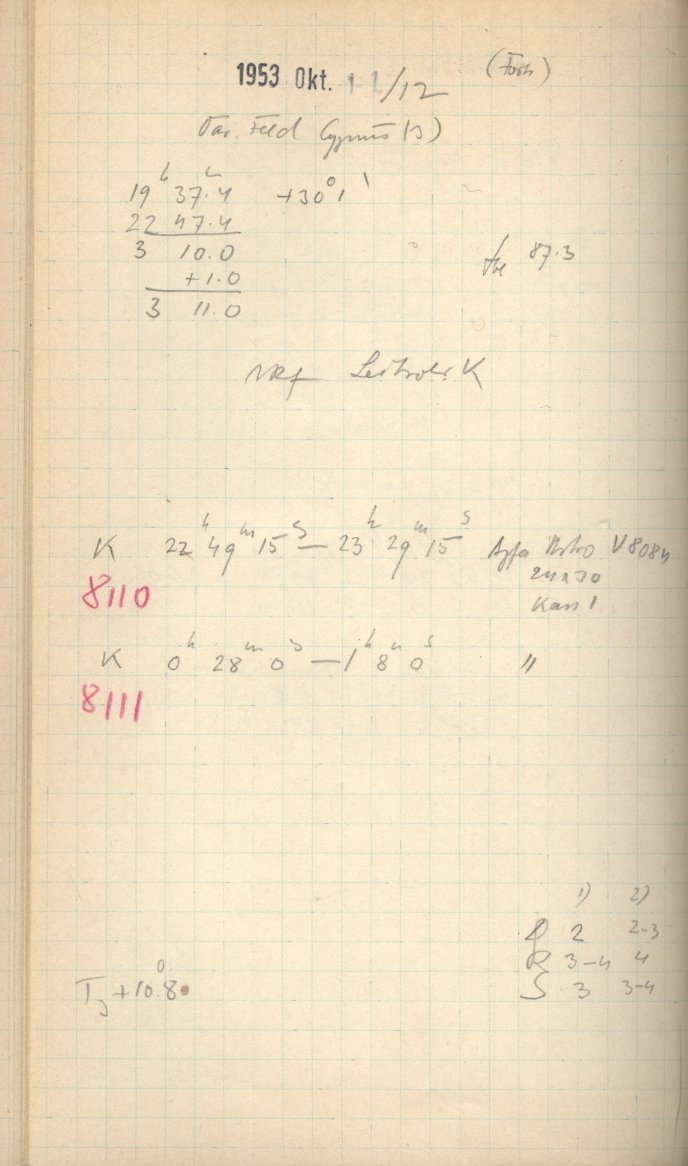 1953 Okt. 11/12
Var. Feld Cygnus (3)
19ʰ 37.4 +30°1'
22 47.4
3 10.0
+1.0
3 11.0
87.3
K 22ʰ 49ᵐ 15ˢ — 23ʰ 29ᵐ 15ˢ Agfa Astro
24x30
8110
K 0ʰ 28ᵐ 0ˢ — 1ʰ 8ᵐ 0ˢ "
8111
1) 2)
2 2-3
R 3-4 4
S 3 3-4
+10.8°